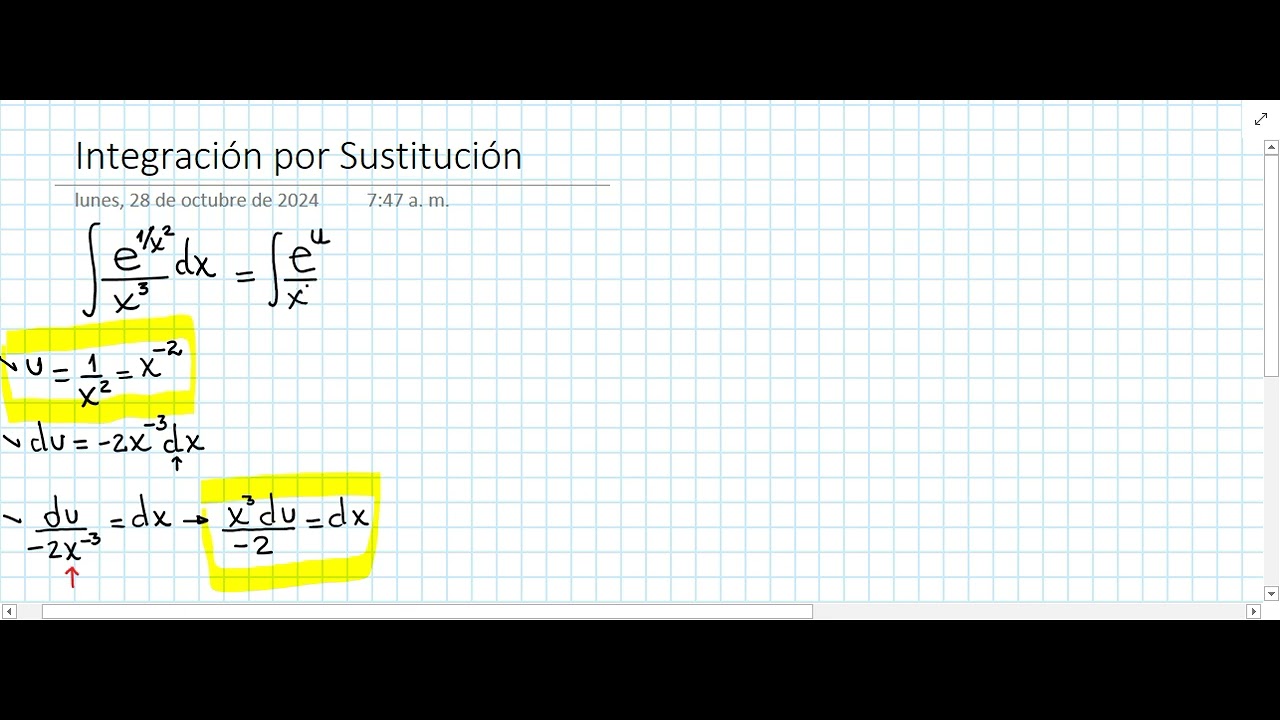 Integración por Sustitución
lunes, 28 de octubre de 2024 7:47 a. m.
∫ e^(1/x²) / x³ dx = ∫ e^u / x
u = 1/x² = x⁻²
du = -2x⁻³dx
du / -2x⁻³ = dx → x³ du / -2 = dx